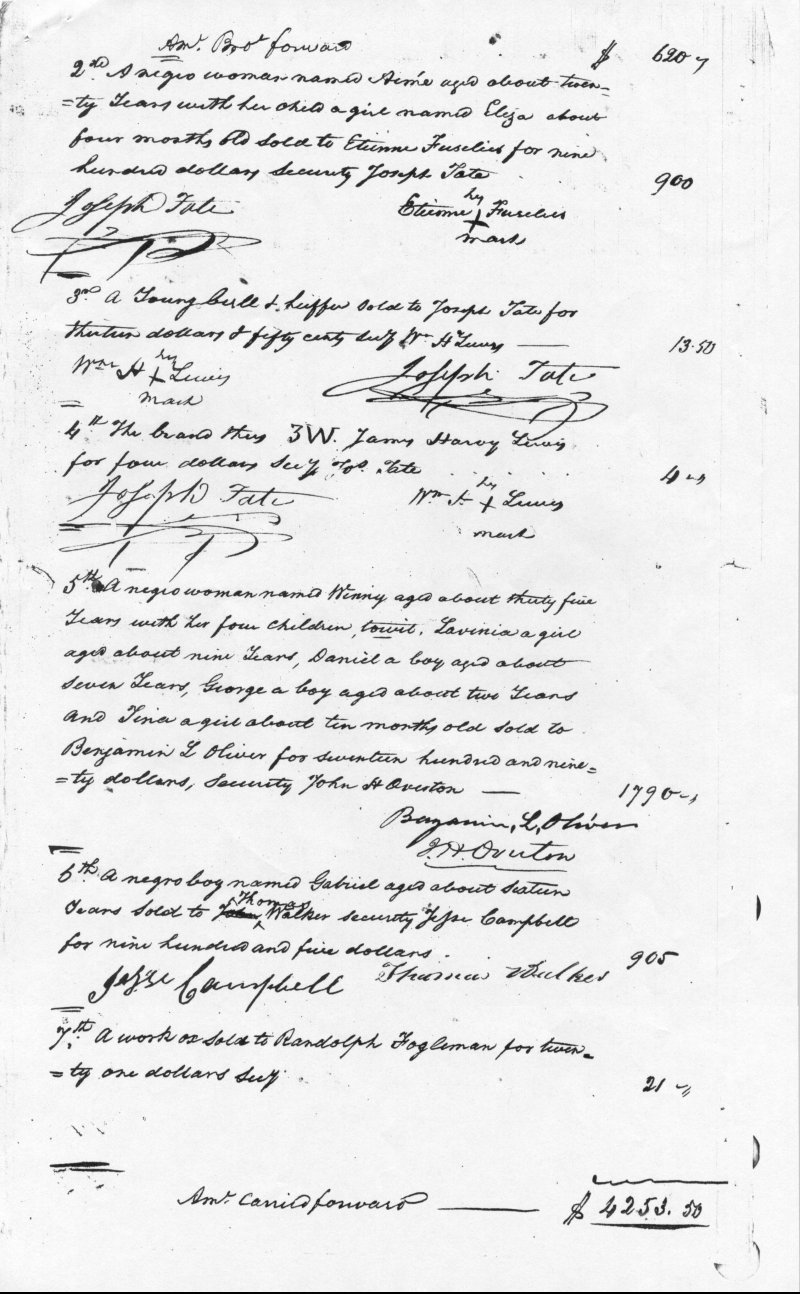 Amt. Brot forward $ 620 "
2nd A negro woman named Aimée aged about twen=
=ty Years with her child a girl named Eliza about
four months old sold to Etienne Fuselier for nine
hundred dollars Security Joseph Tate 900
Joseph Tate Etienne his + Fuselier
mark
3rd A Young bull & heiffer sold to Joseph Tate for
thirteen dollars & fifty cents Secy Wm H Lewis 13.50
Wm H his + Lewis
mark
Joseph Tate
4th The brand thus 3W. James Harvy Lewis
for four dollars Secy Jos. Tate 4 "
Joseph Tate Wm H his + Lewis
mark
5th A negro woman named Winny aged about thirty five
Years with her four children, towit. Lavinia a girl
aged about nine Years, Daniel a boy aged about
seven Years, George a boy aged about two Years
and Tina a girl about ten months old sold to
Benjamin L Oliver for seventeen hundred and nine=
=ty dollars, Security John H Overton 1790 "
Benjamin, L, Oliver
J. H. Overton
6th A negro boy named Gabriel aged about sixteen
Years sold to John Thomas Walker security Jesse Campbell
for nine hundred and five dollars. 905
Jesse Campbell Thomas Walker
7th. A work ox sold to Randolph Fogleman for twen=
=ty one dollars Secy 21 "
Amt. Carried forward $ 4253.50